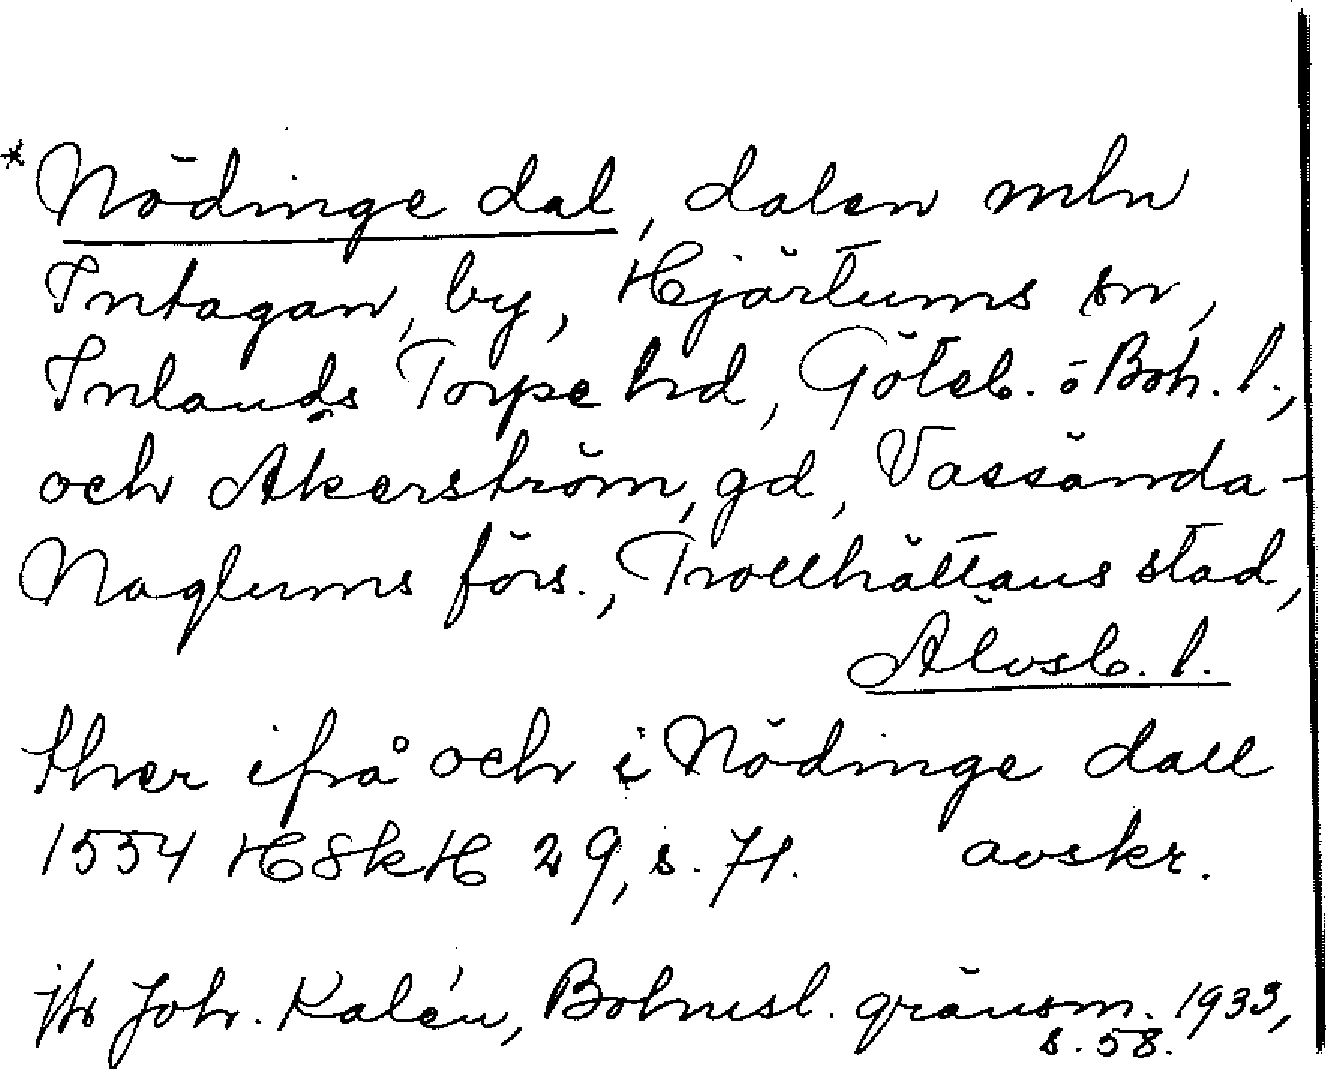 * Nödinge dal, dalen mln
Intagan, by, Hjärtums sn,
Inlands Torpe hd, Göteb. o Boh. l.,
och Åkerström, gd, Vassända-
Naglums förs., Trollhättans stad,
Älvsb. l.
ther ifrå och i Nödinge dall
1554 HSkH 29, s. 71. avskr.
jfr Joh. Kalén, Bohusl. gränsm. 1933,
s. 58.